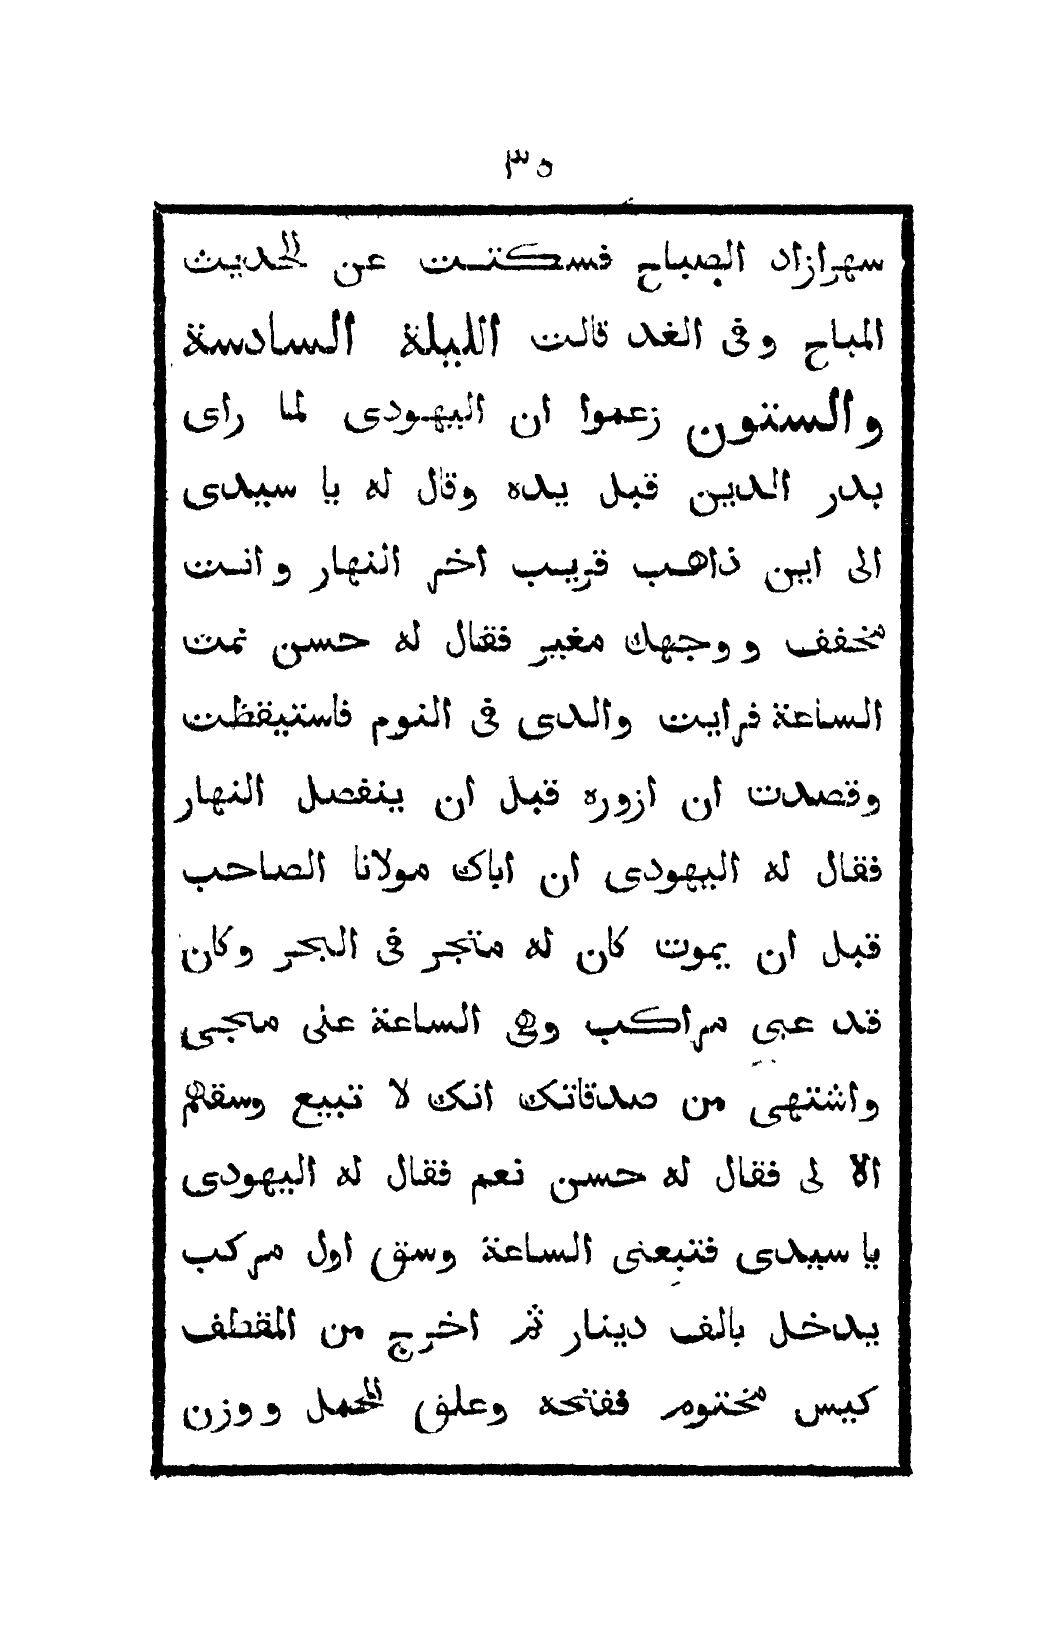 ٣٥
سهرازاد الصباح فسكتت عن الحديث
المباح وفى الغد قالت الليلة السادسة
والستون زعموا ان اليهودى لما راى
بدر الدين قبل يده وقال له يا سيدى
الى اين ذاهب قريب اخر النهار وانت
مخفف ووجهك مغير فقال له حسن نمت
الساعة فرايت والدى فى النوم فاستيقظت
وقصدت ان ازوره قبل ان ينفصل النهار
فقال له اليهودى ان اباك مولانا الصاحب
قبل ان يموت كان له متجر فى البحر وكان
قد عبى مراكب وهى الساعة عنى مجى
واشتهى من صدقاتك انك لا تبيع وسقهم
الا لى فقال له حسن نعم فقال له اليهودى
يا سيدى فتبعنى الساعة وسق اول مركب
يدخل بالف دينار ثم اخرج من المقطف
كيس مختوم ففتحه وعلق المحمل ووزن